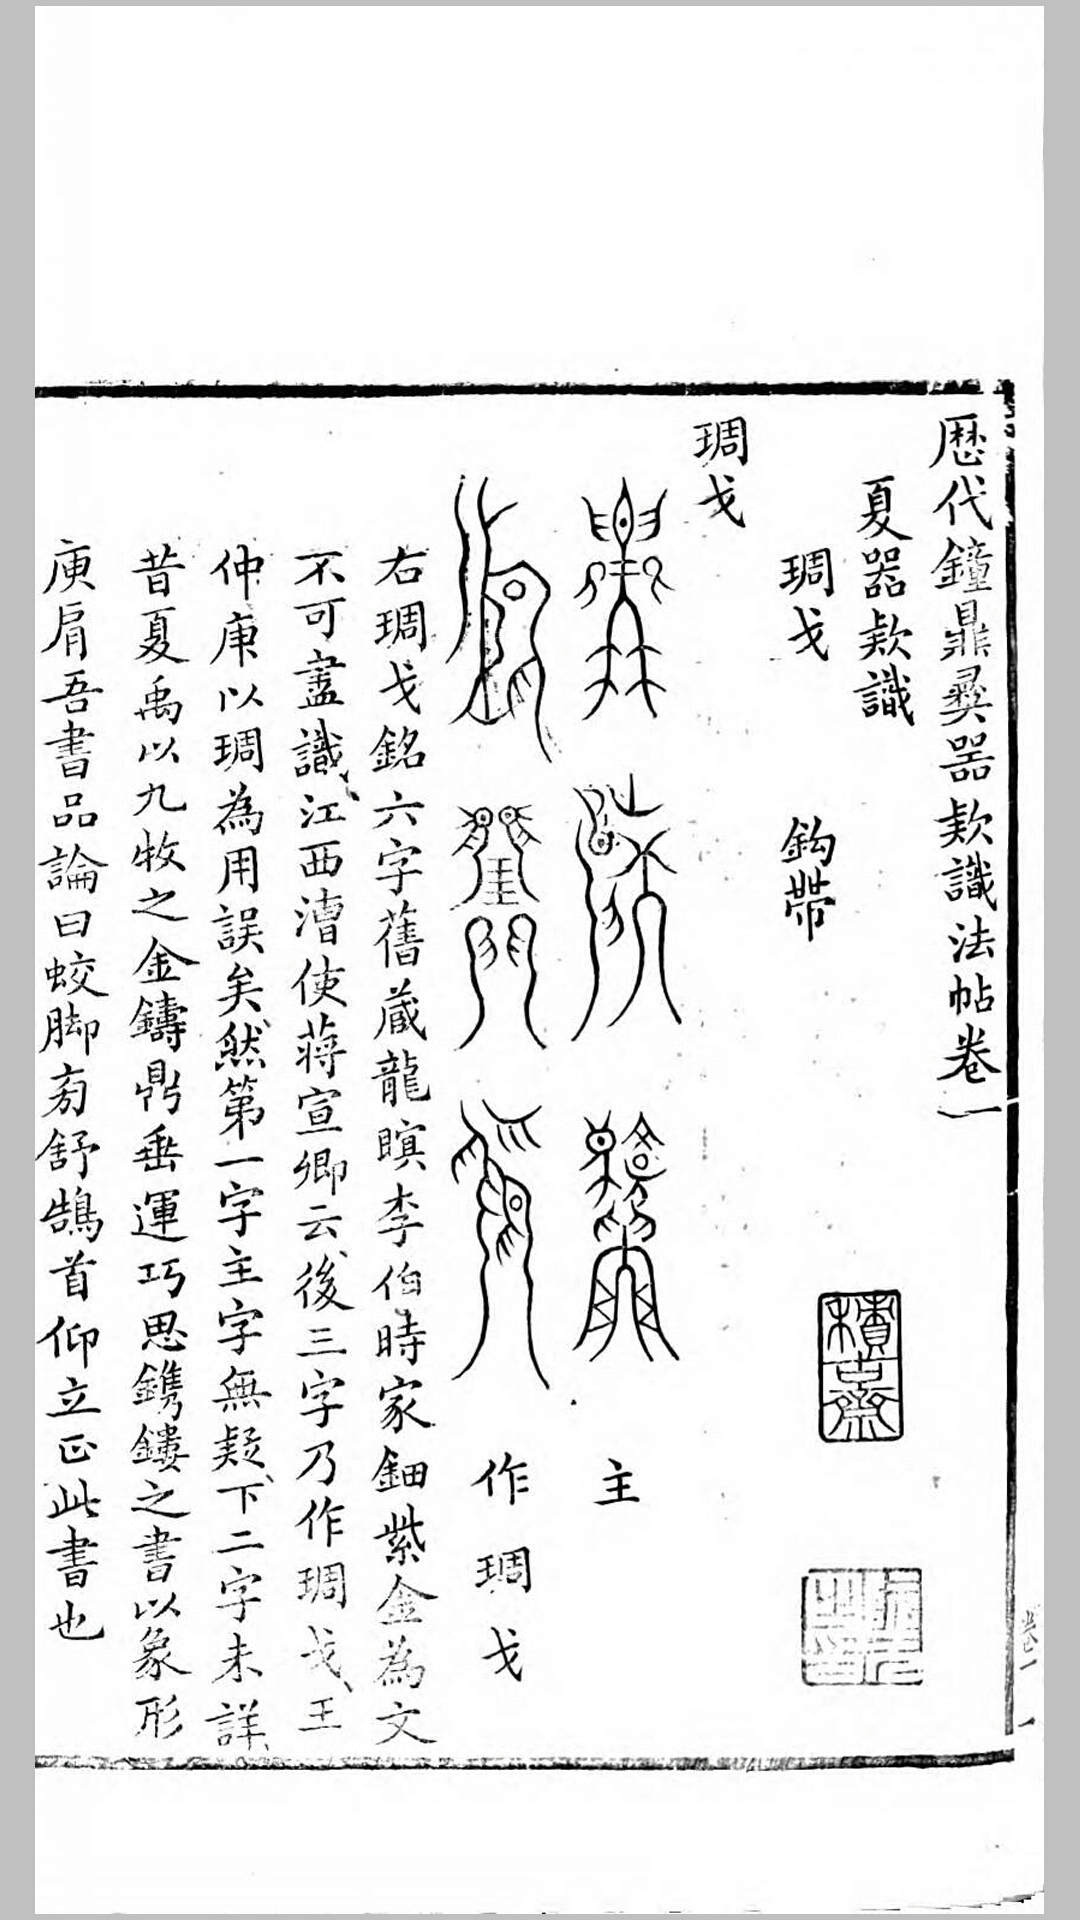 歴代鐘鼎彛器款識法帖卷一
夏器款識
琱戈
鈎帶
琱戈
主
作琱戈
右琱戈銘六字舊蔵龍瞑李伯時家鈿紫金為文
不可盡識江西漕使蒋宣卿云後三字乃作琱戈王
仲庚以琱為用誤矣然第一字主字無疑下二字未詳
昔夏禹以九牧之金鑄鼎垂運巧思鐫鏤之書以象形
庾肩吾書品論曰蛟脚旁舒鵠首仰立正此書也
積古齋
卷一